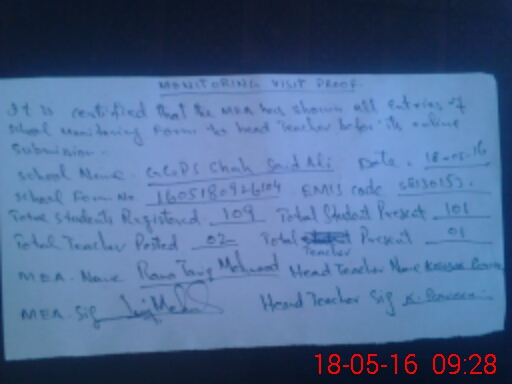 MONITORING VISIT PROOF
It is certified that the MEA has shown all Entries of
school Monitoring Form to head Teacher before its online
Submission.
School Name. GGPS Chah Said Ali Date. 18-05-16
School Form No 1605180926104 EMIS code
Total Students Registered 109 Total Student Present 101
Total Teacher Posted 02 Total Teacher Present 01
MEA. Name Rana Tariq Mehmood Head Teacher Name
MEA. Sig Head Teacher Sig K. Parveen
18-05-16 09:28